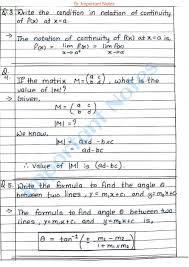 By Important Notes
Q.3. Write the condition in notation of continuity
of f(x) at x=a.
→ The notation of continuity of f(x) at x=a is,
f(a) = lim f(x) = lim f(x)
x→a⁺ x→a⁻
Q.4. If the matrix M = (a c / b d), what is the
value of |M| ?
→ Given,
M = (a c / b d)
|M| = ?
We know,
|M| = axd - bxc
= ad-bc
∴ Value of |M| is (ad-bc).
Q.5. Write the formula to find the angle θ
between two lines, y = m₁x+c₁ and y=m₂x+c₂.
→ The formula to find angle θ between two
lines, y = m₁x+c₁ and y = m₂x+c₂ is,
θ = tan⁻¹ (± m₁ - m₂ / 1+m₁m₂)
Important Notes